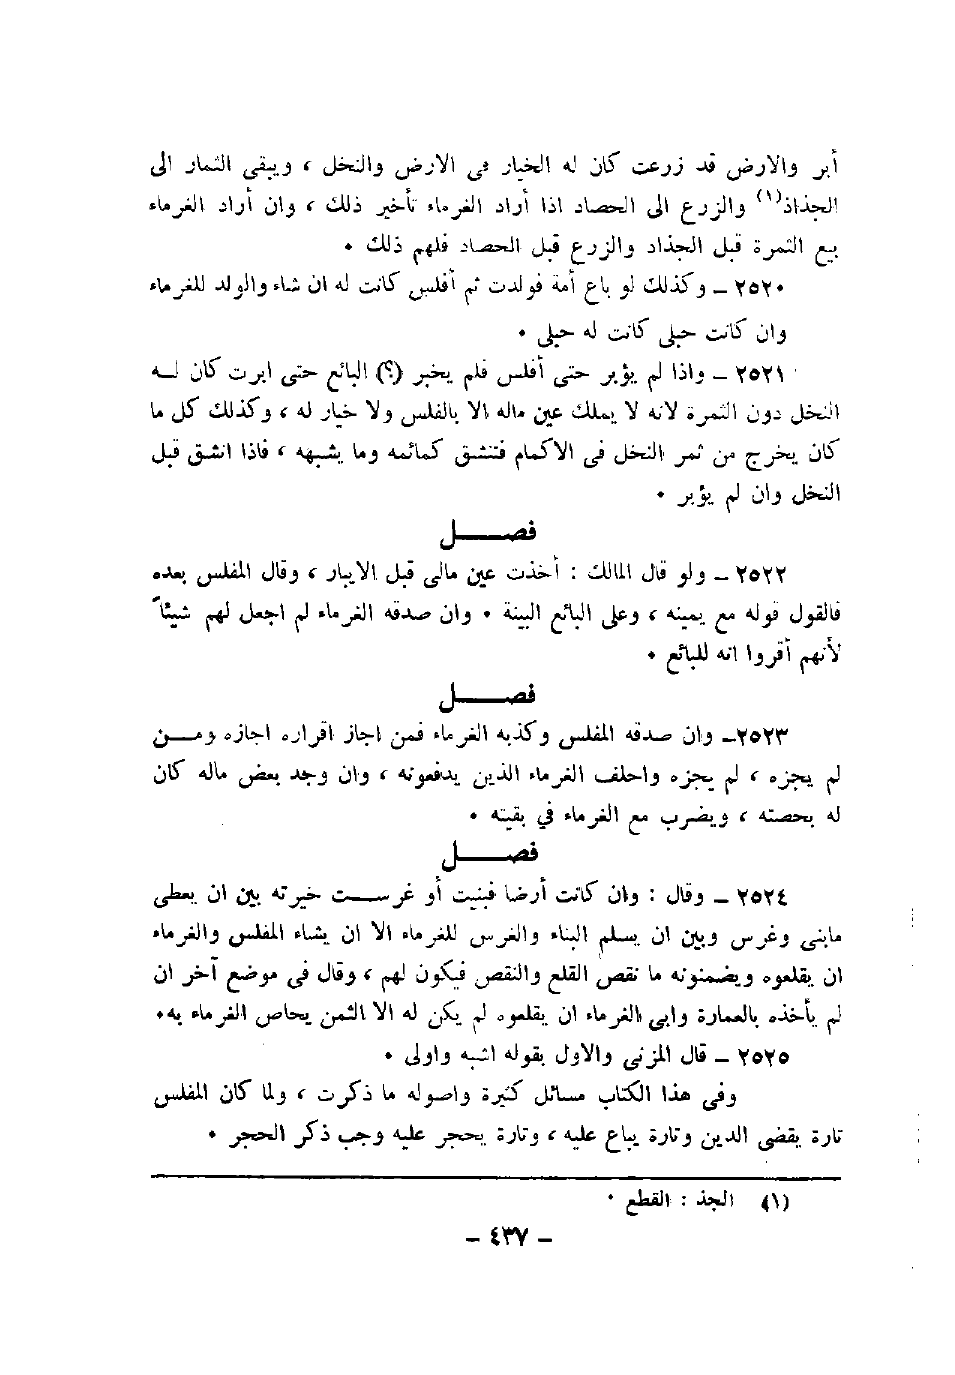 أبر والارض قد زرعت كان له الخيار فى الارض والنخل ، ويبقى الثمار الى
الجذاذ(١) والزرع الى الحصاد اذا أراد الغرماء تأخير ذلك ، وان أراد الغرماء
بيع الثمرة قبل الجذاد والزرع قبل الحصاد فلهم ذلك ٠
٢٥٢٠ ــ وكذلك لو باع أمة فولدت ثم أفلس كانت له ان شاء والولد للغرماء
وان كانت حبلى كانت له حبلى ٠
٢٥٢١ ــ واذا لم يؤبر حتى أفلس فلم يخبر (؟) البائع حتى ابرت كان لــه
النخل دون الثمرة لانه لا يملك عين ماله الا بالفلس ولا خيار له ، وكذلك كل ما
كان يخرج من ثمر النخل فى الاكمام فتنشق كمائمه وما يشبهه ، فاذا انشق قبل
النخل وان لم يؤبر ٠
فصــــل
٢٥٢٢ ــ ولو قال المالك : أخذت عين مالى قبل الايبار ، وقال المفلس بعده
فالقول قوله مع يمينه ، وعلى البائع البينة ٠ وان صدقه الغرماء لم اجعل لهم شيئاً
لأنهم أقروا انه للبائع ٠
فصــــل
٢٥٢٣ــ وان صدقه المفلس وكذبه الغرماء فمن اجاز اقراره اجازه ومــن
لم يجزه ، لم يجزه واحلف الغرماء الذين يدفعونه ، وان وجد بعض ماله كان
له بحصته ، ويضرب مع الغرماء في بقيته ٠
فصــــل
٢٥٢٤ ــ وقال : وان كانت أرضا فبنيت أو غرســت خيرته بين ان يعطى
مابنى وغرس وبين ان يسلم البناء والغرس للغرماء الا ان يشاء المفلس والغرماء
ان يقلعوه ويضمنونه ما نقص القلع والنقص فيكون لهم ، وقال فى موضع آخر ان
لم يأخذه بالعمارة وابى الغرماء ان يقلعوه لم يكن له الا الثمن يحاص الغرماء به٠
٢٥٢٥ ــ قال المزنى والاول بقوله اشبه واولى ٠
وفى هذا الكتاب مسائل كثيرة واصوله ما ذكرت ، ولما كان المفلس
تارة يقضى الدين وتارة يباع عليه ، وتارة يحجر عليه وجب ذكر الحجر ٠
(١) الجذ : القطع ٠
ــ ٤٣٧ ــ